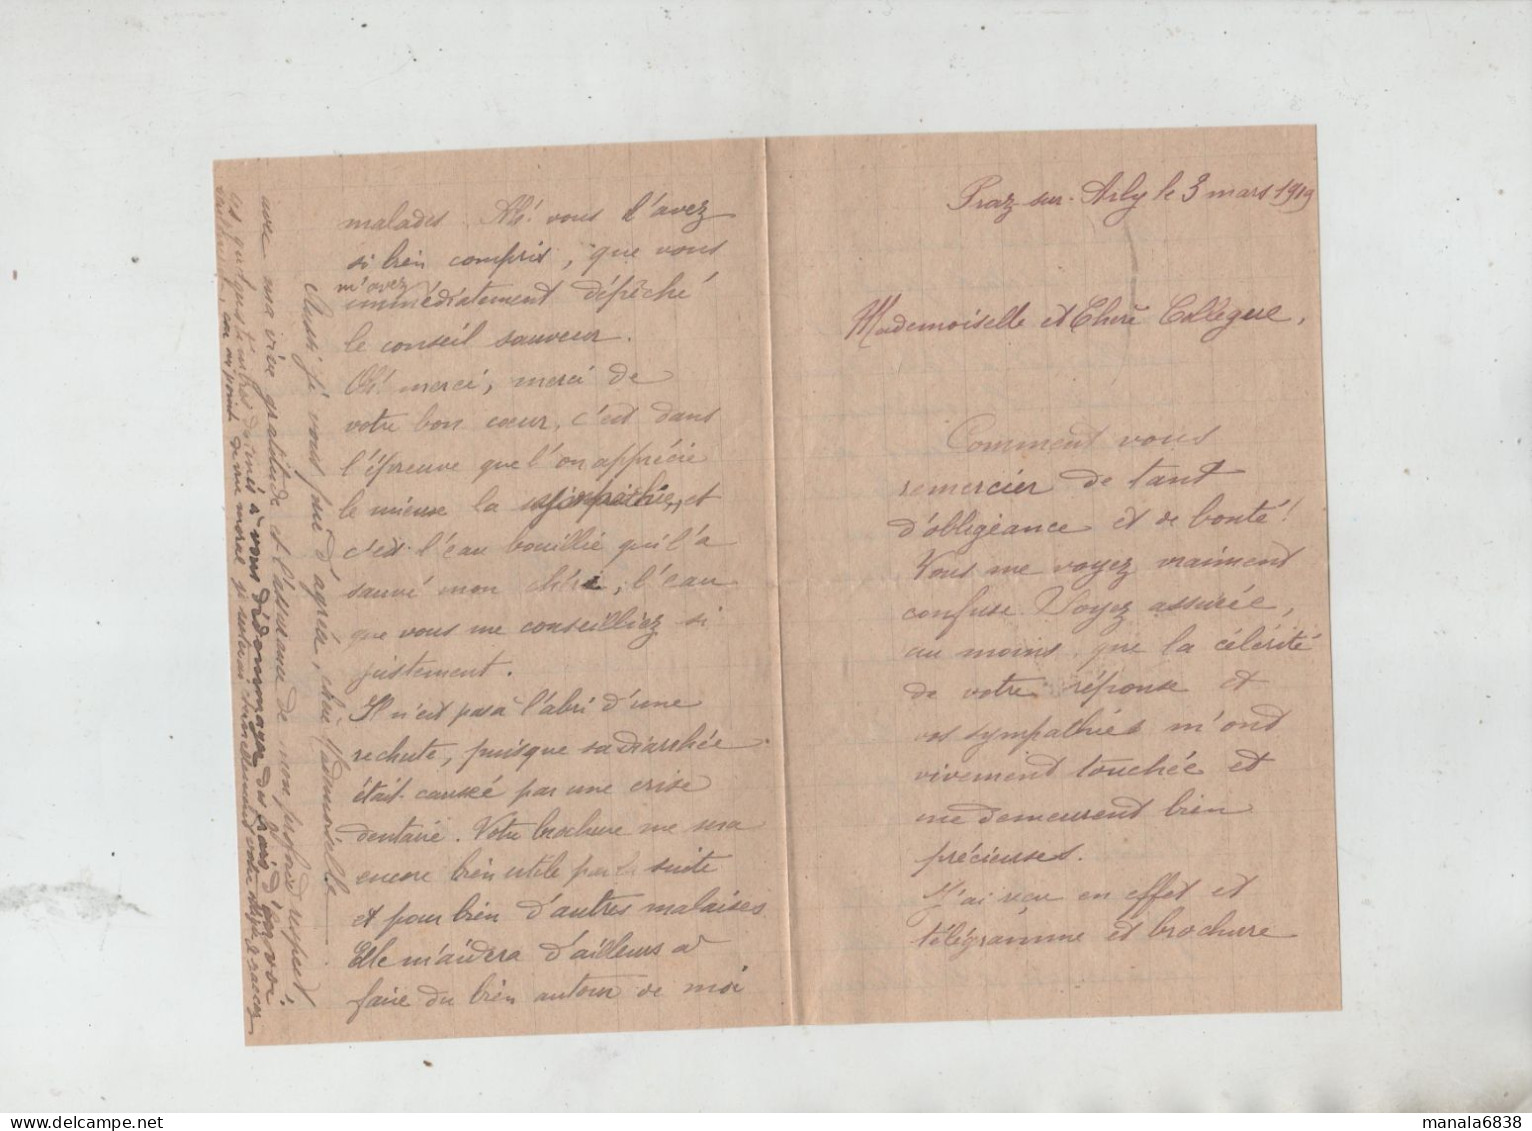 Praz-sur-Arly le 3 mars 1919
Mademoiselle et Chère Collègue,
Comment vous
remercier de tant
d'obligeance et de bonté!
Vous me voyez vraiment
confuse. Soyez assurée,
au moins, que la célérité
de votre réponse et
vos sympathies m'ont
vivement touchée et
me demeurent bien
précieuses.
J'ai reçu en effet et
télégramme et brochure
malades. Ah! vous l'avez
si bien compris, que vous
m'avez
immédiatement dépêché
le conseil sauveur.
Oh! merci, merci de
votre bon cœur, c'est dans
l'épreuve que l'on apprécie
le mieux la sympathie, et
c'est l'eau bouillie qui l'a
sauvé mon chéri, l'eau
que vous me conseilliez si
justement.
Il n'est pas à l'abri d'une
rechute, puisque sa diarrhée
était causée par une crise
dentaire. Votre brochure me sera
encore bien utile par la suite
et pour bien d'autres malaises
Elle m'aidera d'ailleurs à
faire du bien autour de moi
Aussi je vous prie d'agréer, chère Mademoiselle
avec ma vive gratitude et l'assurance de mon profond respect,
ces quelques timbres destinés à vous dédommager des frais d'envoi.
car au point de vue moral je